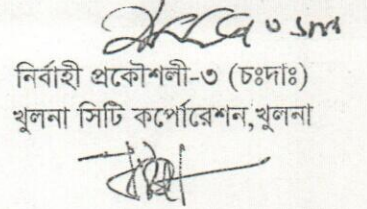 নির্বাহী প্রকৌশলী-৩ (চঃদাঃ)
খুলনা সিটি কর্পোরেশন,খুলনা